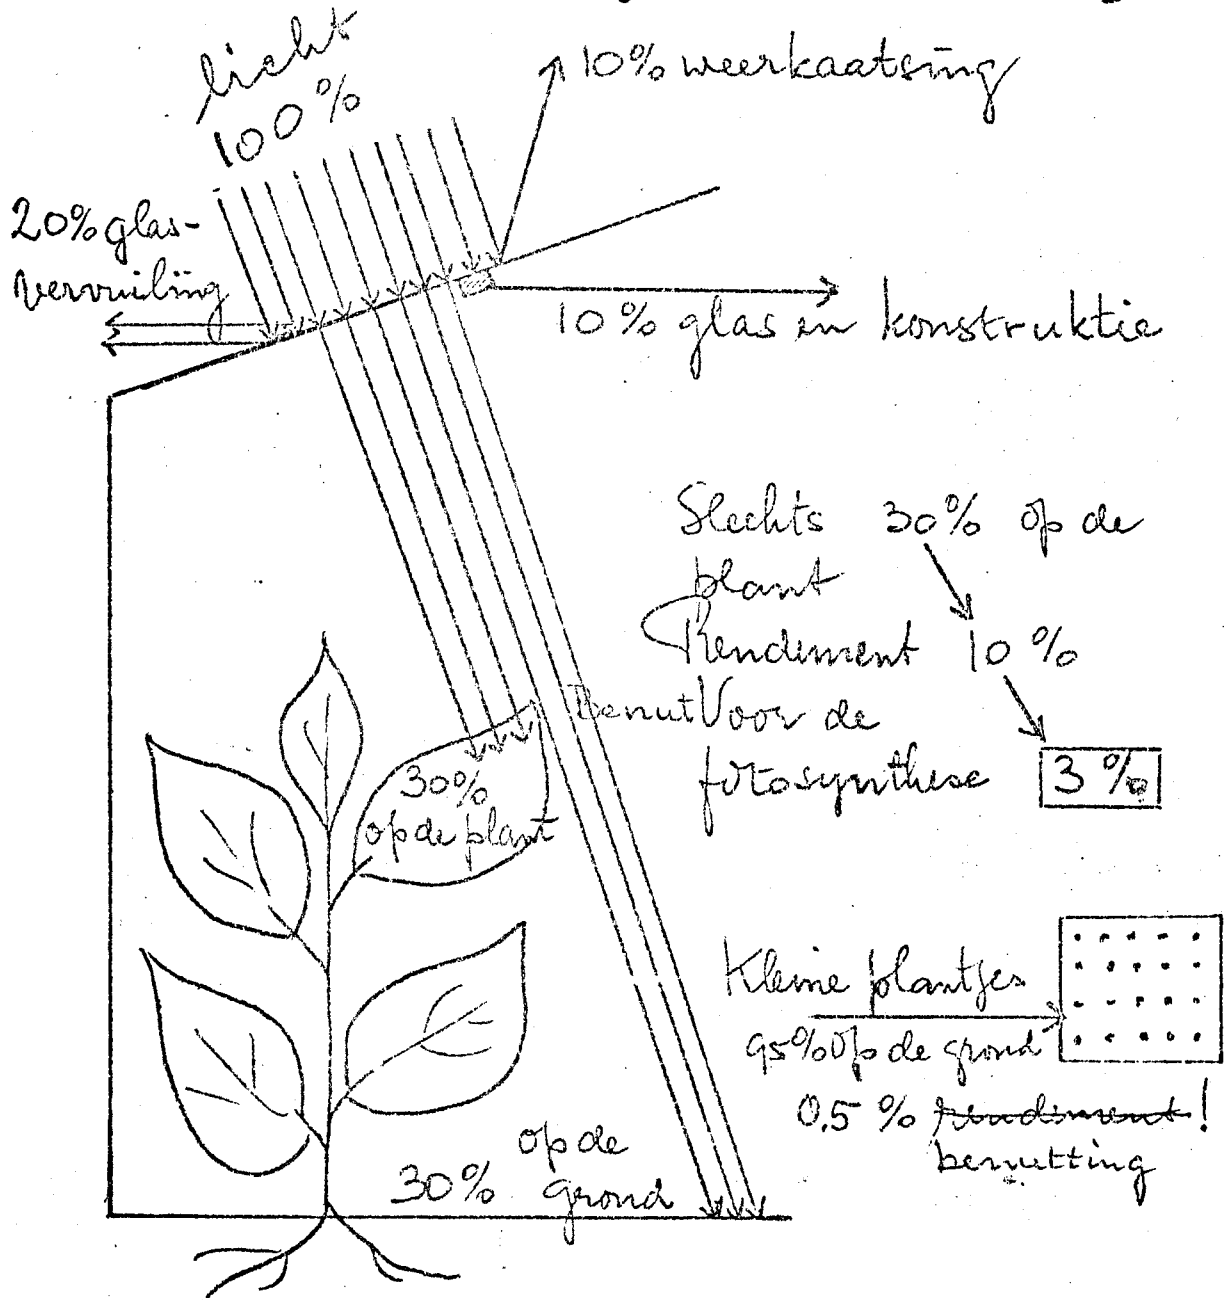 licht
100%
10% weerkaatsing
20% glas-
vervuiling
10% glas en konstruktie
Slechts 30% op de
plant
Rendement 10%
Benut Voor de
fotosynthese 3%
30%
op de plant
Kleine plantjes
95% Op de grond
0,5% rendement!
benutting
op de
30% grond